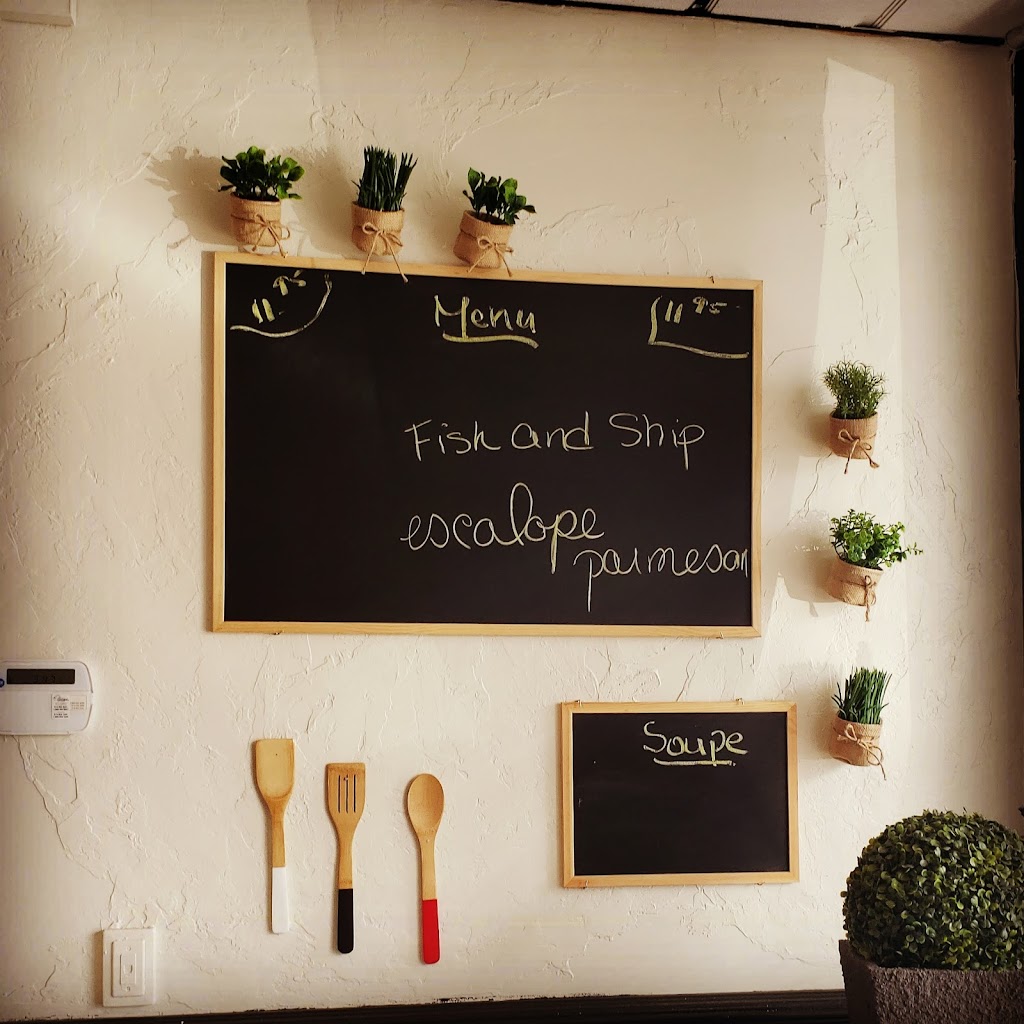 11 95
Menu
11 95
Fish and Ship
escalope
parmesan
Soupe